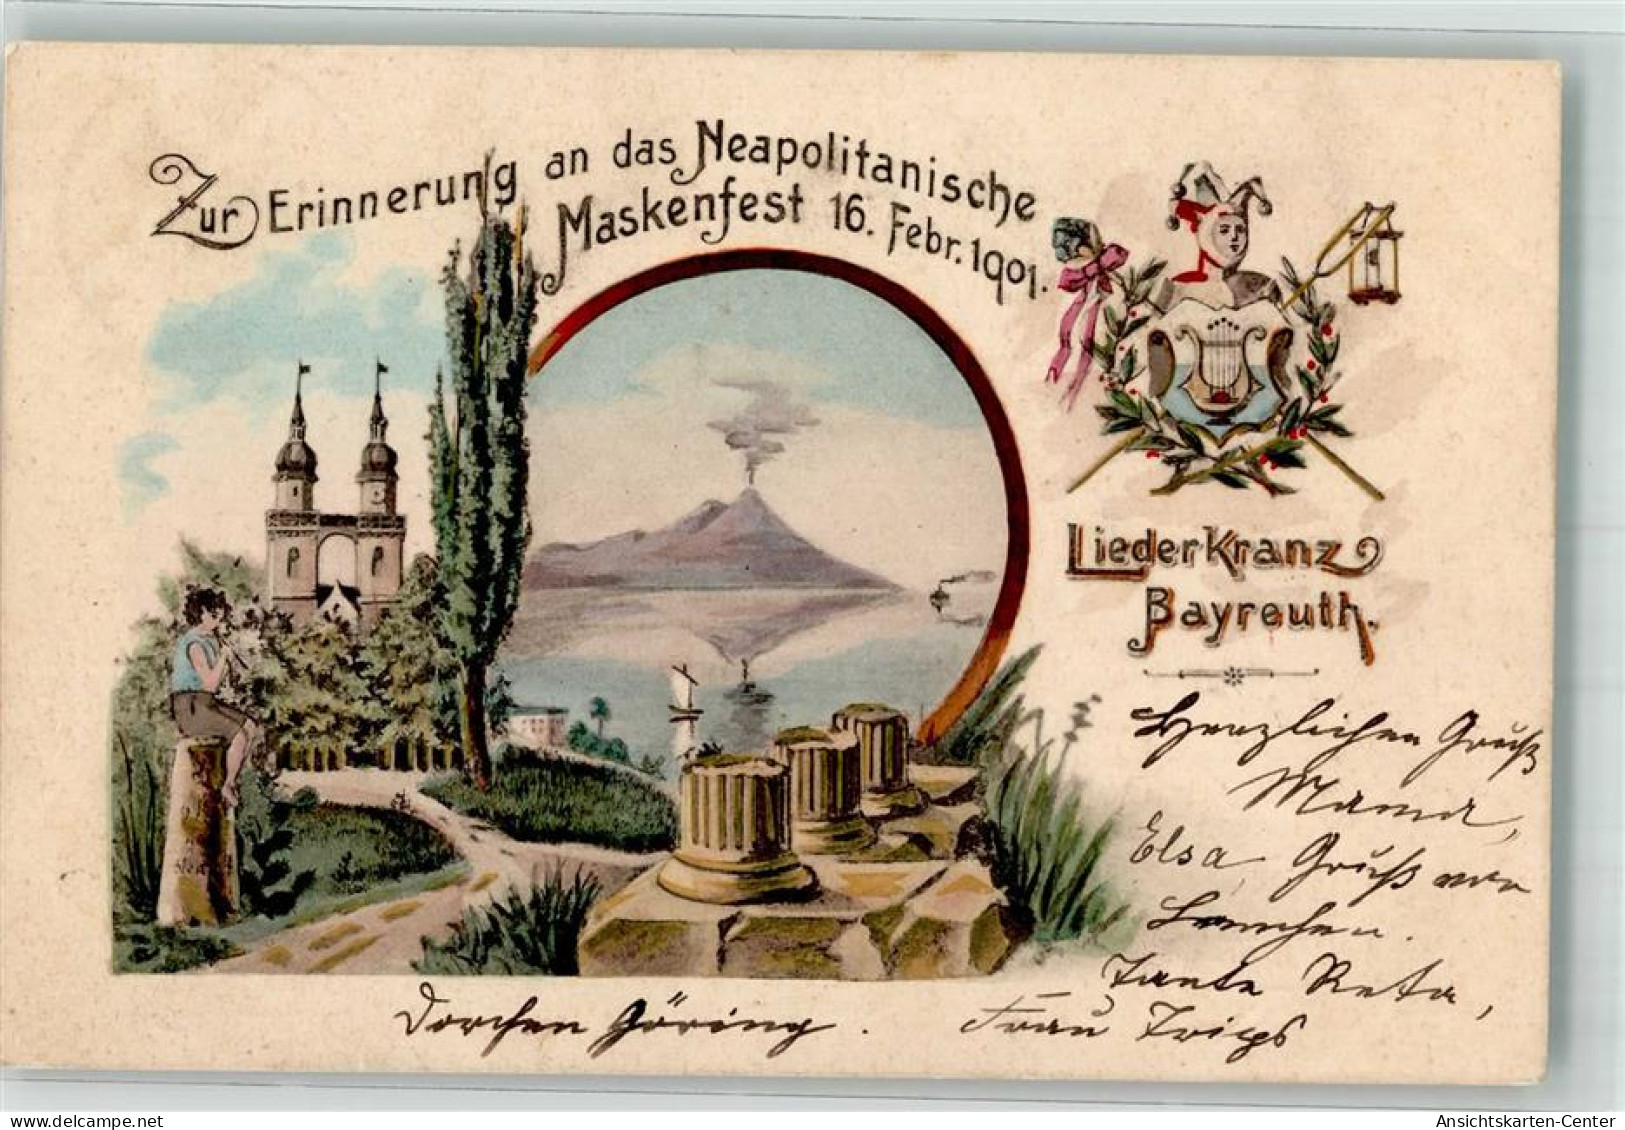 Zur Erinnerung an das Neapolitanische
Maskenfest 16. Febr. 1901.
Liederkranz
Bayreuth.
Herzlichen Gruß
Mama,
Elsa, Gruß von
Lenchen.
Tante Reta,
Dorchen Göring. Frau Trips
Ansichtskarten-Center